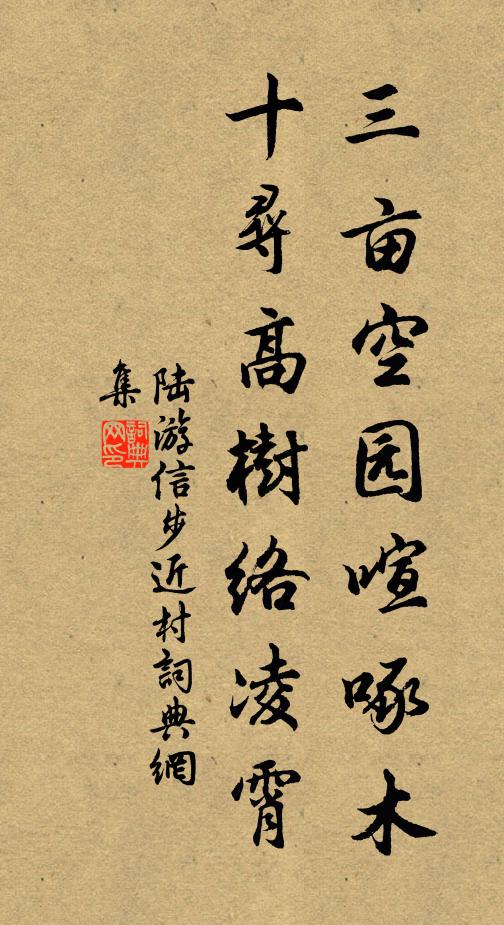 三亩空园喧啄木
十尋高樹络凌霄
陆游信步近村詞典網
集
詞典网印